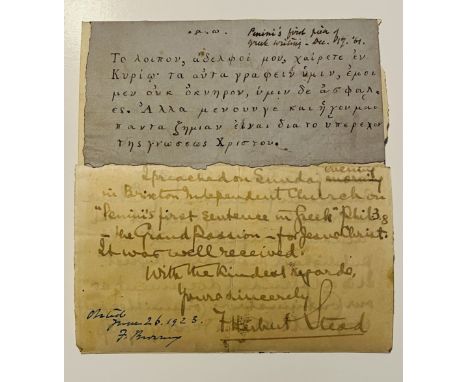 • α. ω.
Penini's first piece of
Greek writing - Dec. 17. '61.
Το λοιπον, αδελφοι μου, χαιρετε εν
Κυριῳ· τα αυτα γραφειν υμιν, εμοι
μεν ουκ οκνηρον, υμιν δε ασφαλ-
ες. Αλλα μενουνγε και ηγουμαι
παντα ζημιαν ειναι δια το υπερεχον
της γνωσεως Χριστου.
I preached on Sunday evening
in Brixton Independent Church on
"Penini's first sentence in Greek" Phil 3 8
- the Grand Passion - for Jesus Christ.
It was well received.
With the kindest regards,
Yours sincerely
F. Herbert Stead
June 26. 1923.